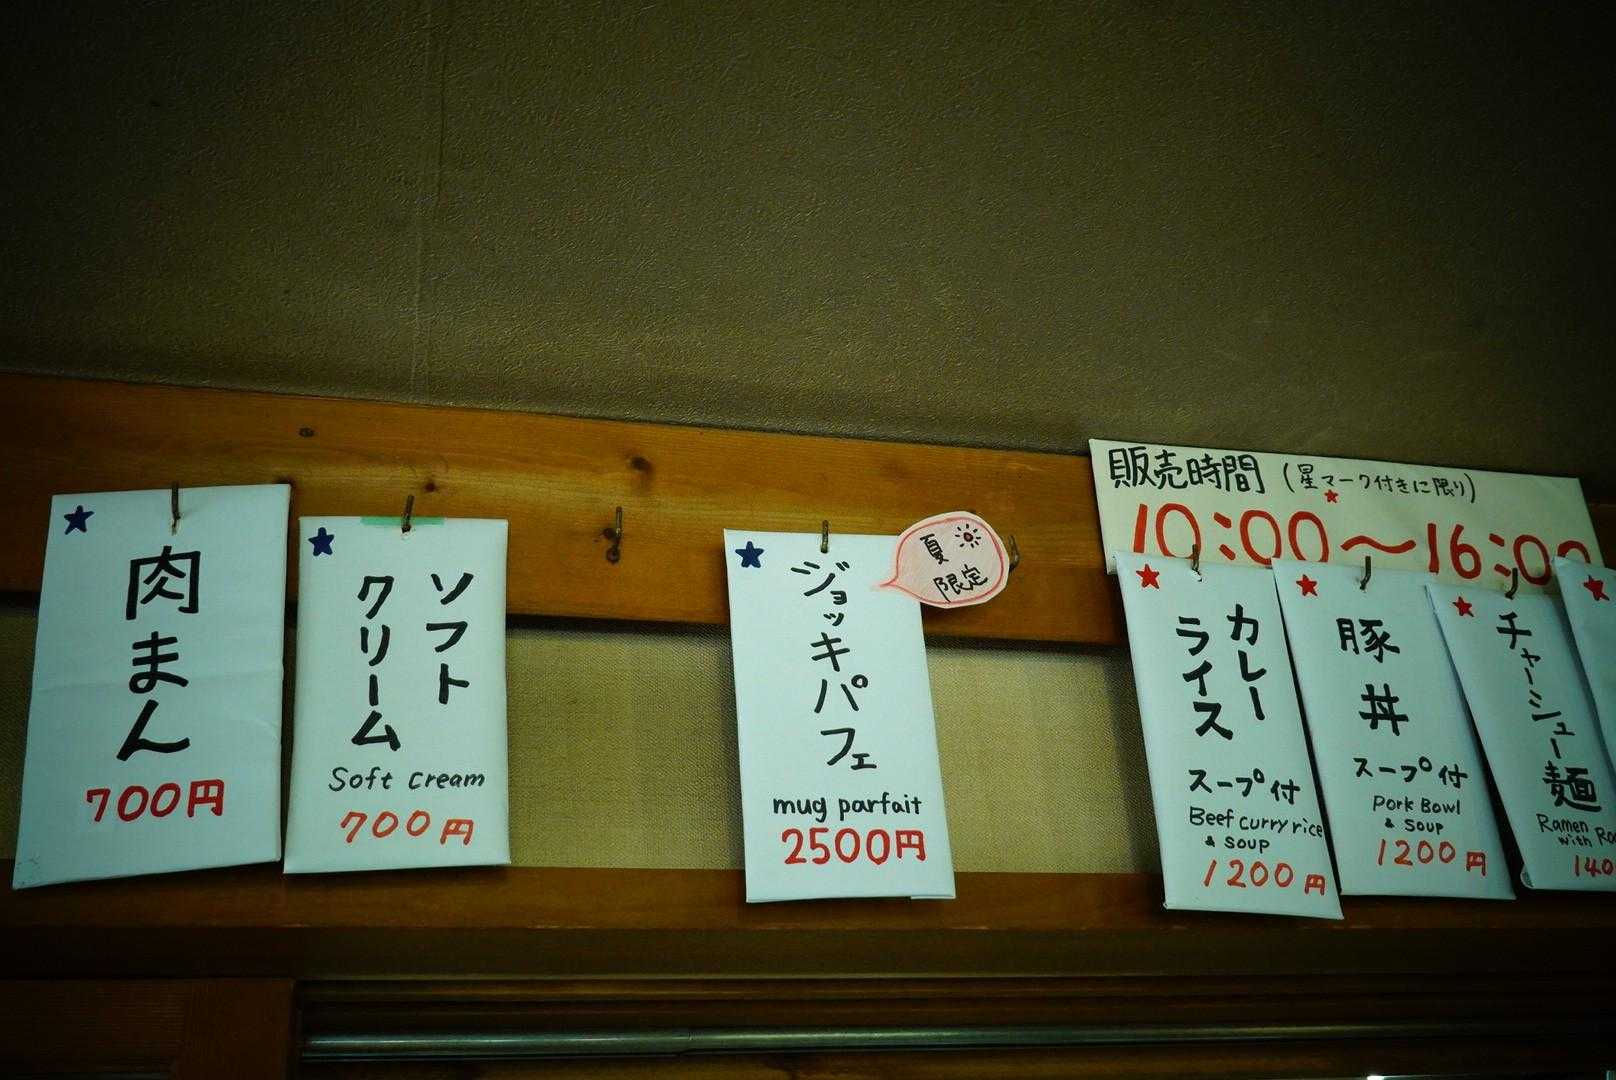 肉まん
700円
ソフト
クリーム
Soft cream
700円
ジョッキパフェ
mug parfait
2500円
夏
限定
販売時間 (星マーク付きに限り)
10:00~16:00
カレー
ライス
スープ付
Beef curry rice
& soup
1200円
豚丼
スープ付
Pork Bowl
& soup
1200円
チャーシュー麺
Ramen
with
140